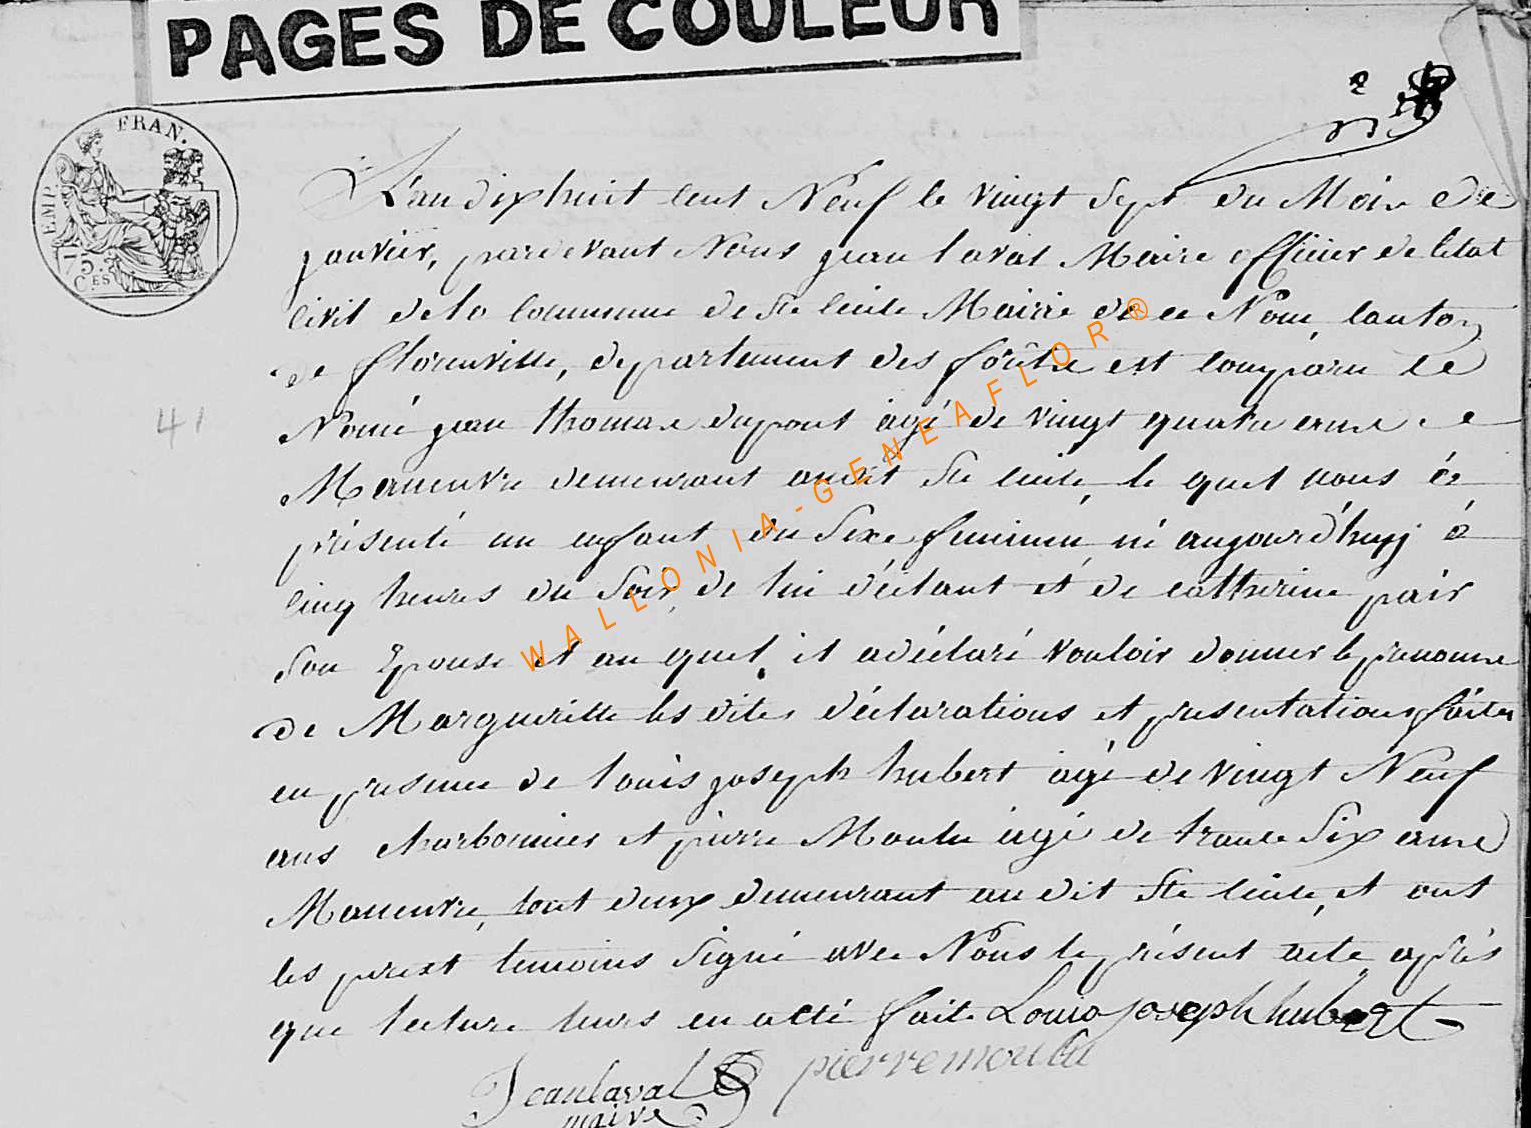 PAGES DE COULEUR
FRAN.
EMP.
75.
CES
L'an dix huit cent Neuf le vingt Sept du Mois De
janvier, pardevant Nous jean laval Maire officier de l'état
civil de la commune de Ste Cécile Mairie de ce Nom, canton
de florenville, departement des forêts est comparu Le
Nomé jean thomas dupont agé de vingt quatre ans
Maneuvre demeurant audit Ste Cecile, le quel nous à
présenté un enfant du Sexe feminin, né aujourd'huy à
cinq heures du Soir, de lui déclant et de catherine pair
Son Epouse et au quel, il adéclaré vouloir donner le prenom
de Margueritte les dites déclarations et presentations faites
en presence de louis joseph hubert agé de vingt Neuf
ans charbonnier et pierre Moulu agé de trante Six ans
Maneuvre, tout deux demeurant au dit Ste Cecile, et ont
les temoins Signé avec Nous le présent acte, après
que lecture leurs en a été fait Louis joseph hubert
pierre moulu
Jean laval
maire
41
WALLONIA-GENEAFLOR®